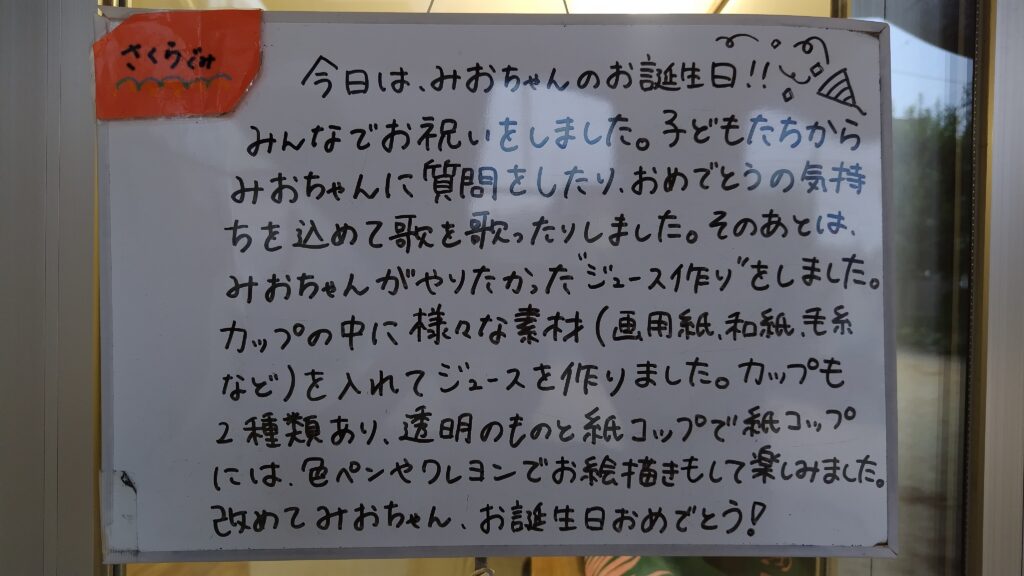 さくらぐみ
今日は、みおちゃんのお誕生日!!
みんなでお祝いをしました。子どもたちから
みおちゃんに質問をしたり、おめでとうの気持
ちを込めて歌を歌ったりしました。そのあとは、
みおちゃんがやりたかった"ジュース作り"をしました。
カップの中に様々な素材(画用紙、和紙、毛糸
など)を入れてジュースを作りました。カップも
2種類あり、透明のものと紙コップで紙コップ
には、色ペンやクレヨンでお絵描きもして楽しみました。
改めてみおちゃん、お誕生日おめでとう!